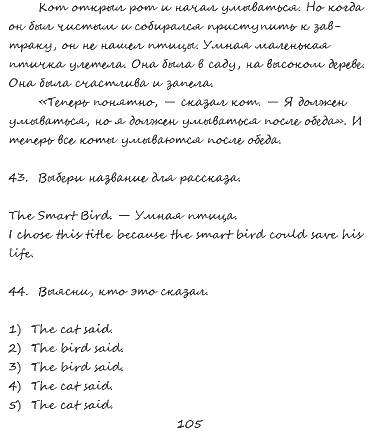 Кот открыл рот и начал умываться. Но когда
он был чистым и собирался приступить к зав-
траку, он не нашел птицы. Умная маленькая
птичка улетела. Она была в саду, на высоком дереве.
Она была счастлива и запела.
«Теперь понятно, — сказал кот. — Я должен
умываться, но я должен умываться после обеда». И
теперь все коты умываются после обеда.
43. Выбери название для рассказа.
The Smart Bird. — Умная птица.
I chose this title because the smart bird could save his
life.
44. Выясни, кто это сказал.
1) The cat said.
2) The bird said.
3) The bird said.
4) The cat said.
5) The cat said.
105